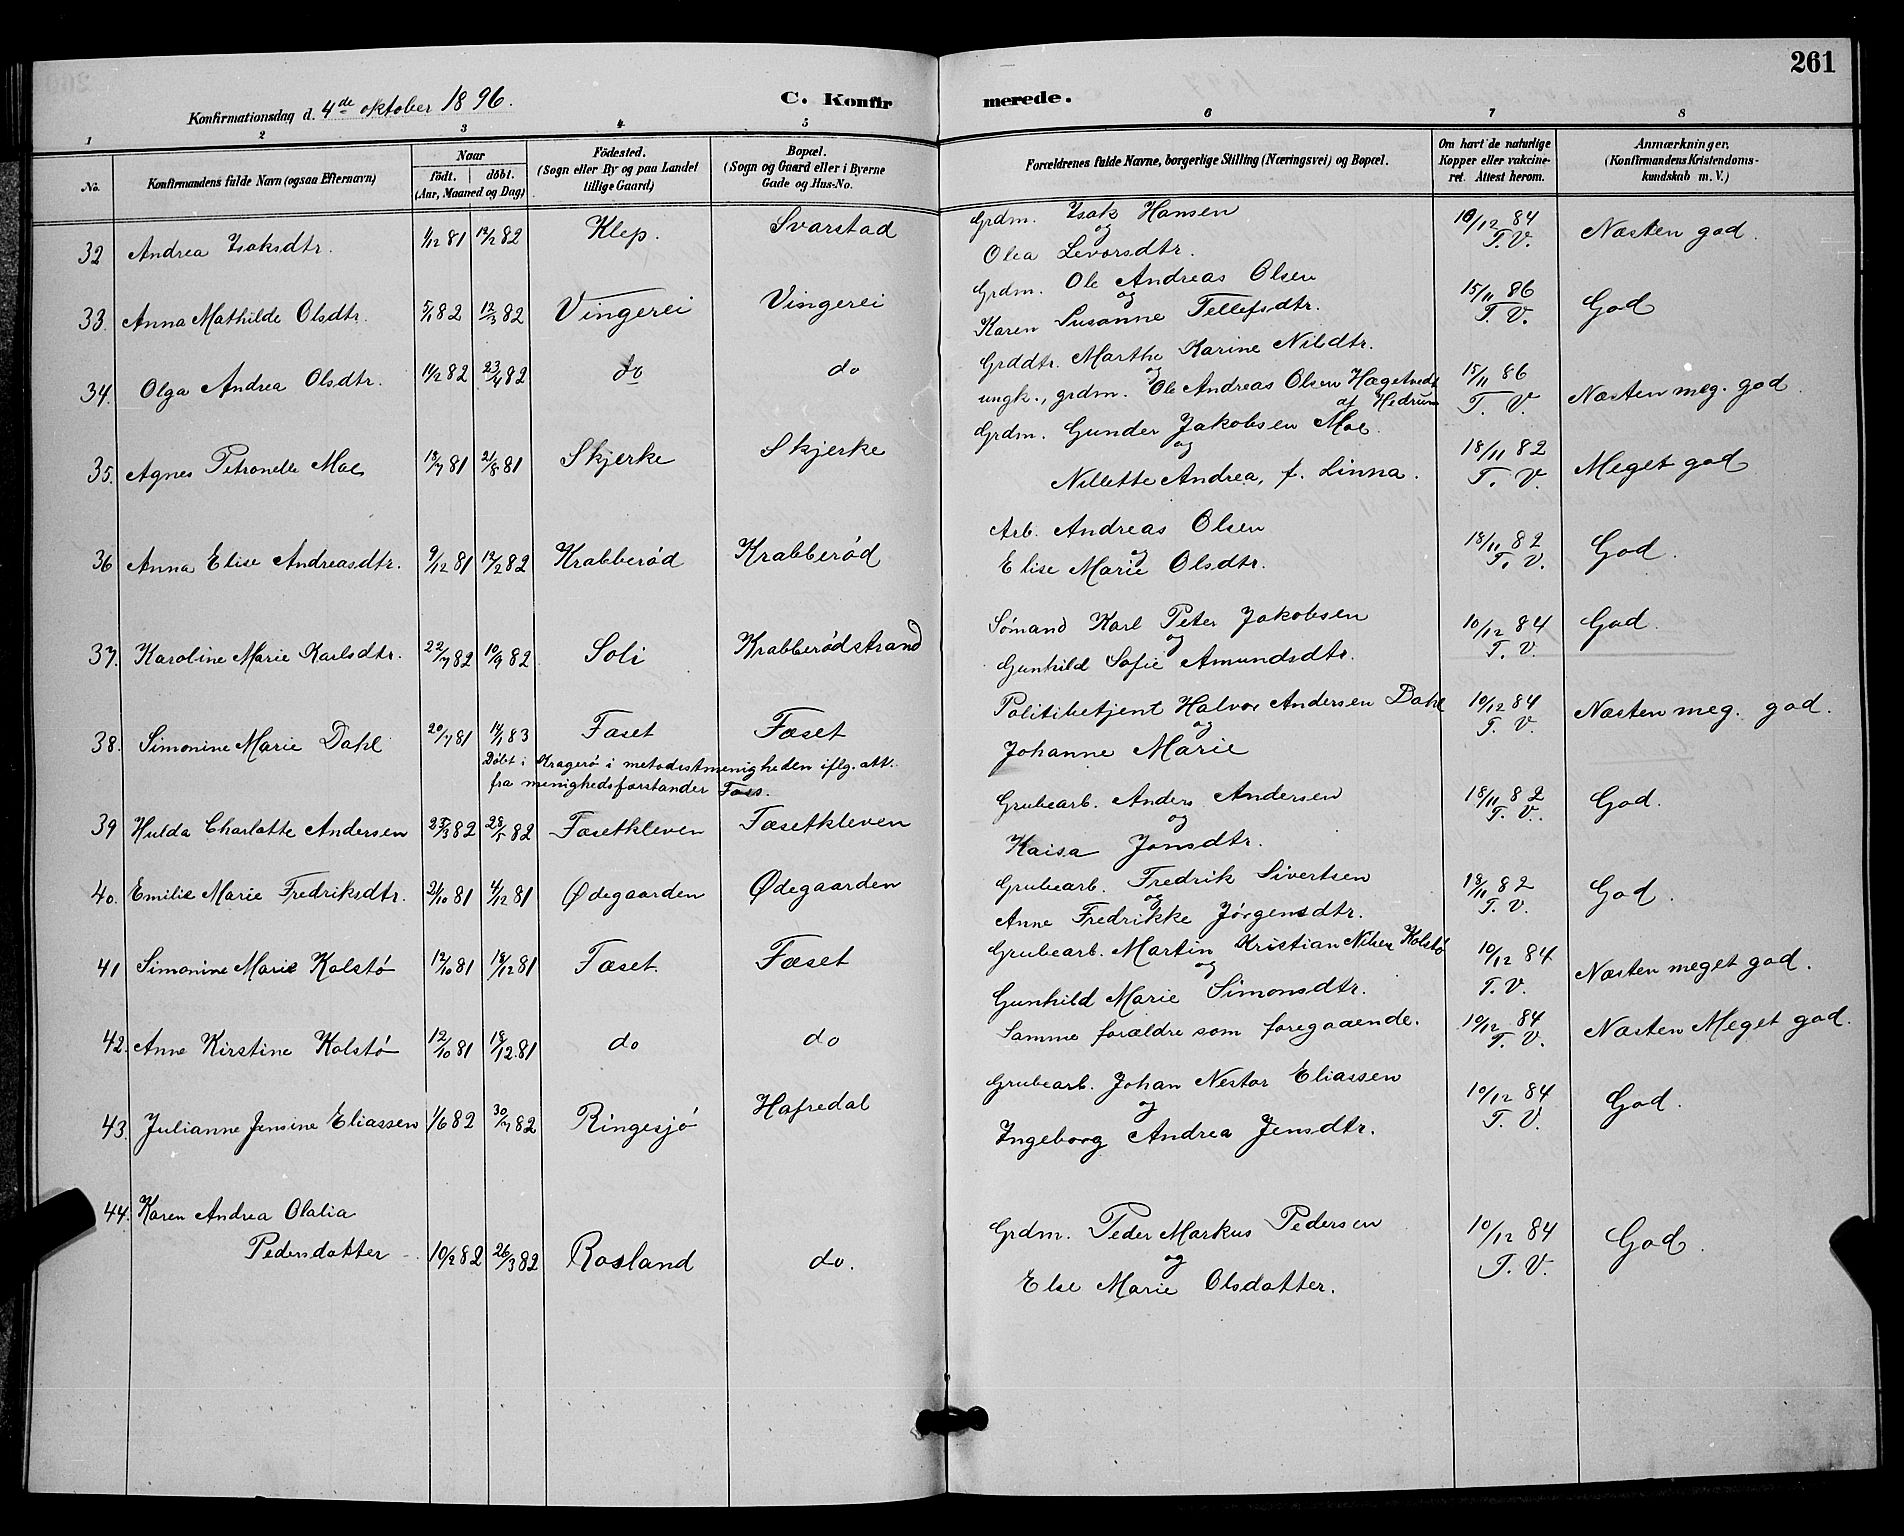 261
Konfirmationsdag d. 4de oktober 1896.
C. Konfirmerede.
1 2 3 4 5 6 7 8
No.
Konfirmandens fulde Navn (ogsaa Efternavn)
Naar
födt. döbt.
(Aar, Maaned og Dag)
Födested.
(Sogn eller By og paa Landet
tillige Gaard)
Bopæl.
(Sogn og Gaard eller i Byerne
Gade og Hus-No.
Forældrenes fulde Navne, borgerlige Stilling (Næringsvei) og Bopæl.
Om havt de naturlige
Kopper eller vakcine-
ret. Attest herom.
Anmærkninger,
(Konfirmandens Kristendoms-
kundskab m. V.)
32 Andrea Isaksdtr. 1/12 81 12/2 82 Klep. Svarstad Grdm. Isak Hansen
og
Olea Levorsdtr. 10/12 84
T. V. Næsten god.
33. Anna Mathilde Olsdtr. 5/1 82 12/3 82 Vingerei Vingerei Grdm. Ole Andreas Olsen
og
Karen Susanne Tellefsdtr. 15/11 86
T. V. God
34. Olga Andrea Olsdtr. 11/2 82 23/4 82 do do Grddtr. Marthe Karine Nilsdtr.
og
ungk., grdm. Ole Andreas Olsen Hagetvedt
af Hedrum 15/11 86
T. V. Næsten meg. god.
35. Agnes Petronelle Moe 13/7 81 21/8 81 Skjerke Skjerke Grdm. Gunder Jakobsen Moe.
og
Nillette Andrea, f. Linna. 18/11 82
T. V. Meget god
36 Anna Elise Andreasdtr. 9/12 81 12/2 82 Krabberød Krabberød Arb. Andreas Olsen
og
Elise Marie Olsdtr. 18/11 82
T. V. God.
37. Karoline Marie Karlsdtr. 22/7 82 10/9 82 Soli Krabberødstrand Sømand Karl Peter Jakobsen
og
Gunhild Sofie Amundsdtr. 10/12 84
T. V. God.
38. Simonine Marie Dahl 20/7 81 14/1 83 Faset Fæset Politibetjent Halvor Andersen Dahl
og
Johanne Marie 10/12 84
T. V. Næsten meg. god.
Døbt i Kragerø i metodistmenigheden iflg. att.
fra menighedsforstander
39 Hulda Charlotte Andersen 25/3 82 28/5 82 Fasetkleven Fæsetkleven Grubearb. Anders Andersen
og
Kaisa Jonsdtr. 18/11 82
T. V. God.
40. Emilie Marie Fredriksdtr. 21/10 81 4/12 81 Ødegaarden Ødegaarden Grubearb. Fredrik Sivertsen
og
Anne Fredrikke Jørgensdtr. 18/11 82
T. V. God.
41 Simonine Marie Kolstø 12/10 81 18/12 81 Fæset. Fæset Grubearb. Martin Kristian Nilsen Kolstø
og
Gunhild Marie Simonsdtr. 10/12 84
T. V. Næsten meget god.
42. Anne Kirstine Kolstø 12/10 81 18/12 81 do do Samme forældre som foregaaende. 10/12 84
T. V. Næsten Meget god.
43. Julianne Jensine Eliassen 1/6 82 30/7 82 Ringesjø Hafredal Grubearb. Johan Nestor Eliassen
og
Ingeborg Andrea Jensdtr. 10/12 84
T. V. God.
44. Karen Andrea Olalia
Pedersdatter - 10/2 82 26/3 82 Rosland do. Grdm. Peder Markus Pedersen
og
Else Marie Olsdatter. 10/12 84
T. V. God.